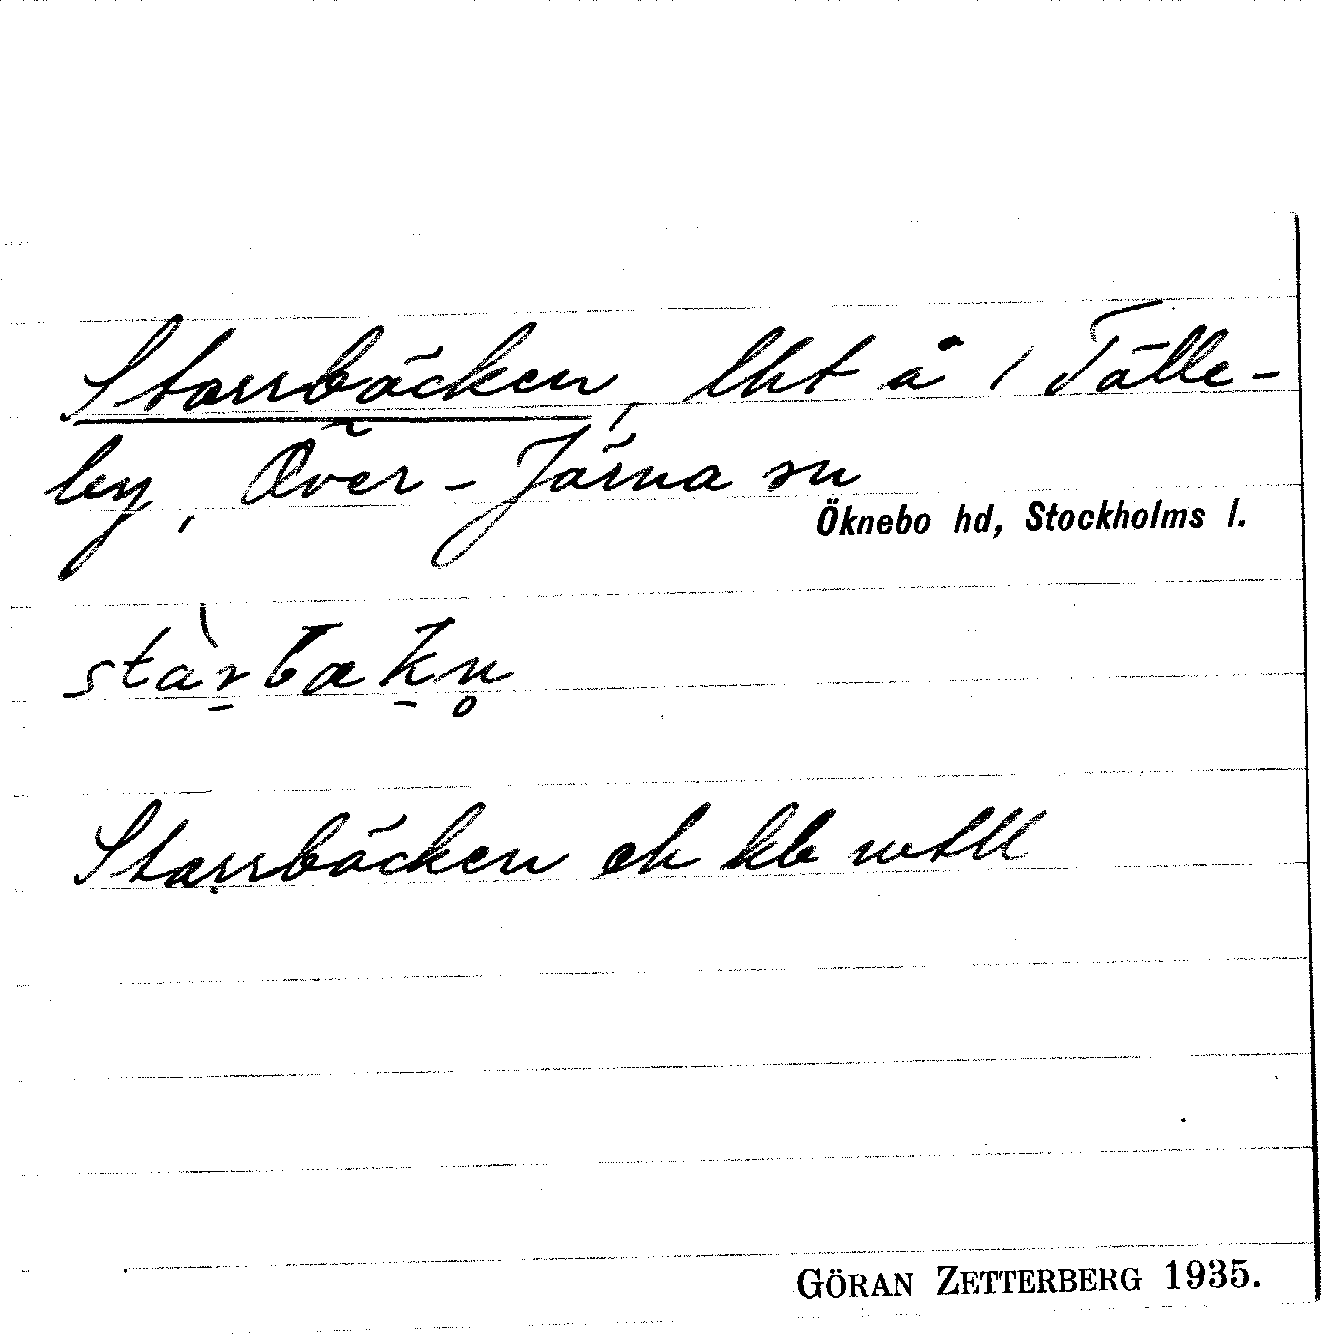 Starrbäcken, lht å i Tälle-
by, Över-Järna sn
Öknebo hd, Stockholms l.
stàr̠bæk̠n̥
Starrbäcken ek kb
GÖRAN ZETTERBERG 1935.